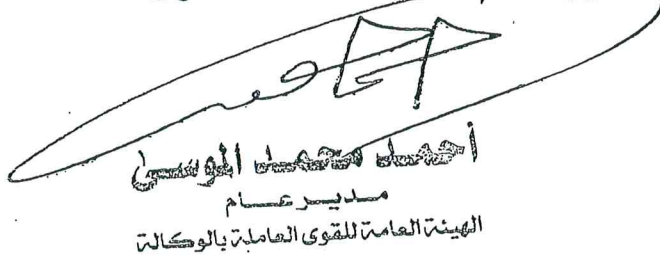 أحمد محمد الموسى
مديـر عـام
الهيئة العامة للقوى العاملة بالوكالة